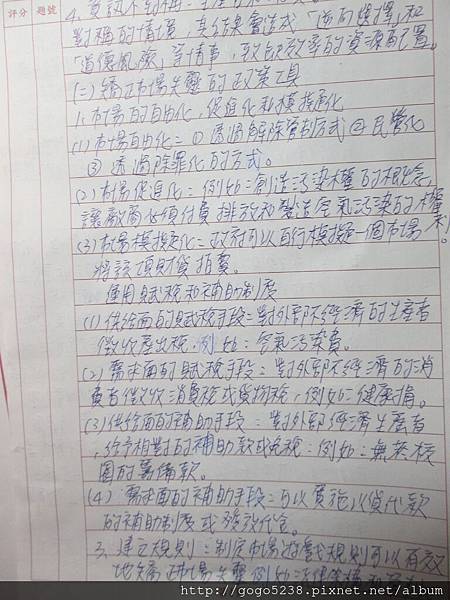 評分 題號
4. 資訊不對稱：生產者和
對稱的情境，其結果會造成「逆向選擇」和
「道德風險」等情事，致缺效率的資源配置。
(二) 矯正市場失靈的政策工具
1. 市場的自由化、促進化和模擬化
(1) 市場自由化：① 透過解除管制方式 ② 民營化
③ 透過除罪化的方式。
(2) 市場促進化：例如：創造污染權的概念，
讓廠商必須付費排放和製造空氣污染的權利。
(3) 市場模擬化：政府可以自行模擬一個市場
將該項財貨拍賣。
使用賦稅和補助制度
(1) 供給面的賦稅手段：對外部不經濟的生產者
徵收產出稅，例如：空氣污染費。
(2) 需求面的賦稅手段：對外部不經濟的消
費者徵收消費稅或貨物稅，例如：健康捐。
(3) 供給面的補助手段：對外部經濟生產者
，給予相對的補助款或免稅：例如：無菸校
園的籌備款。
(4) 需求面的補助手段：可以實施以貨代款
的補助制度或發放代金。
3. 建立規則：制定市場遊戲規則可以有效
地矯正市場失靈 例如：法律架構和
http://gogo5238.pixnet.net/album